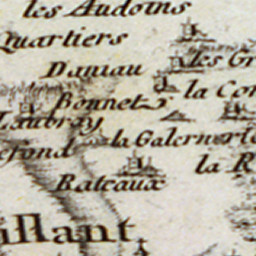 les Audoins
Quartiers
les Gr
Daniau
la Con
Bonnet
Laubray
la Galernerie
efond
la R
Rateaux
illant